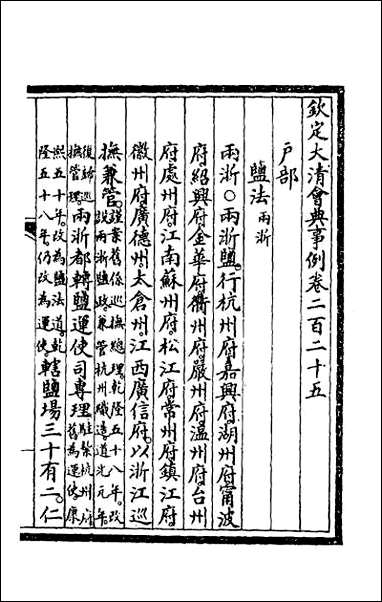 欽定大清會典事例卷二百二十五
戶部
鹽法 兩浙
兩浙○兩浙鹽。行杭州府嘉興府。湖州府甯波
府。紹興府金華府。衢州府。嚴州府。溫州府。台州
府處州府。江南蘇州府。松江府。常州府鎮江府。
徽州府。廣德州。太倉州。江西廣信府。以浙江巡
撫兼管。謹案舊係巡撫總理。乾隆五十八年。改設兩浙鹽政。兼管杭州織造。道光元年。
復歸巡撫管理。兩浙都轉鹽運使司專理駐紮杭州府舊為運使。康
熙五十年。改為鹽法道。乾隆五十八年。仍改為運使。轄鹽場三十有二。仁